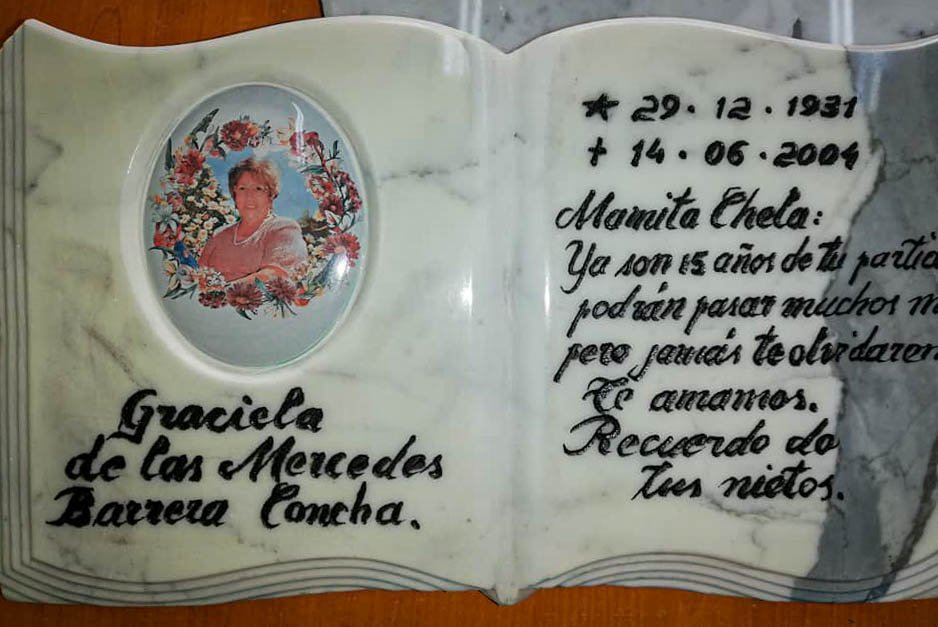 Graciela
de las Mercedes
Barrera Concha.
★ 29 · 12 · 1931
✝ 14 · 06 · 2004
Mamita Chela:
Ya son 15 años de tu partid
podrán pasar muchos m
pero jamás te olvidarem
Te amamos.
Recuerdo de
tus nietos.